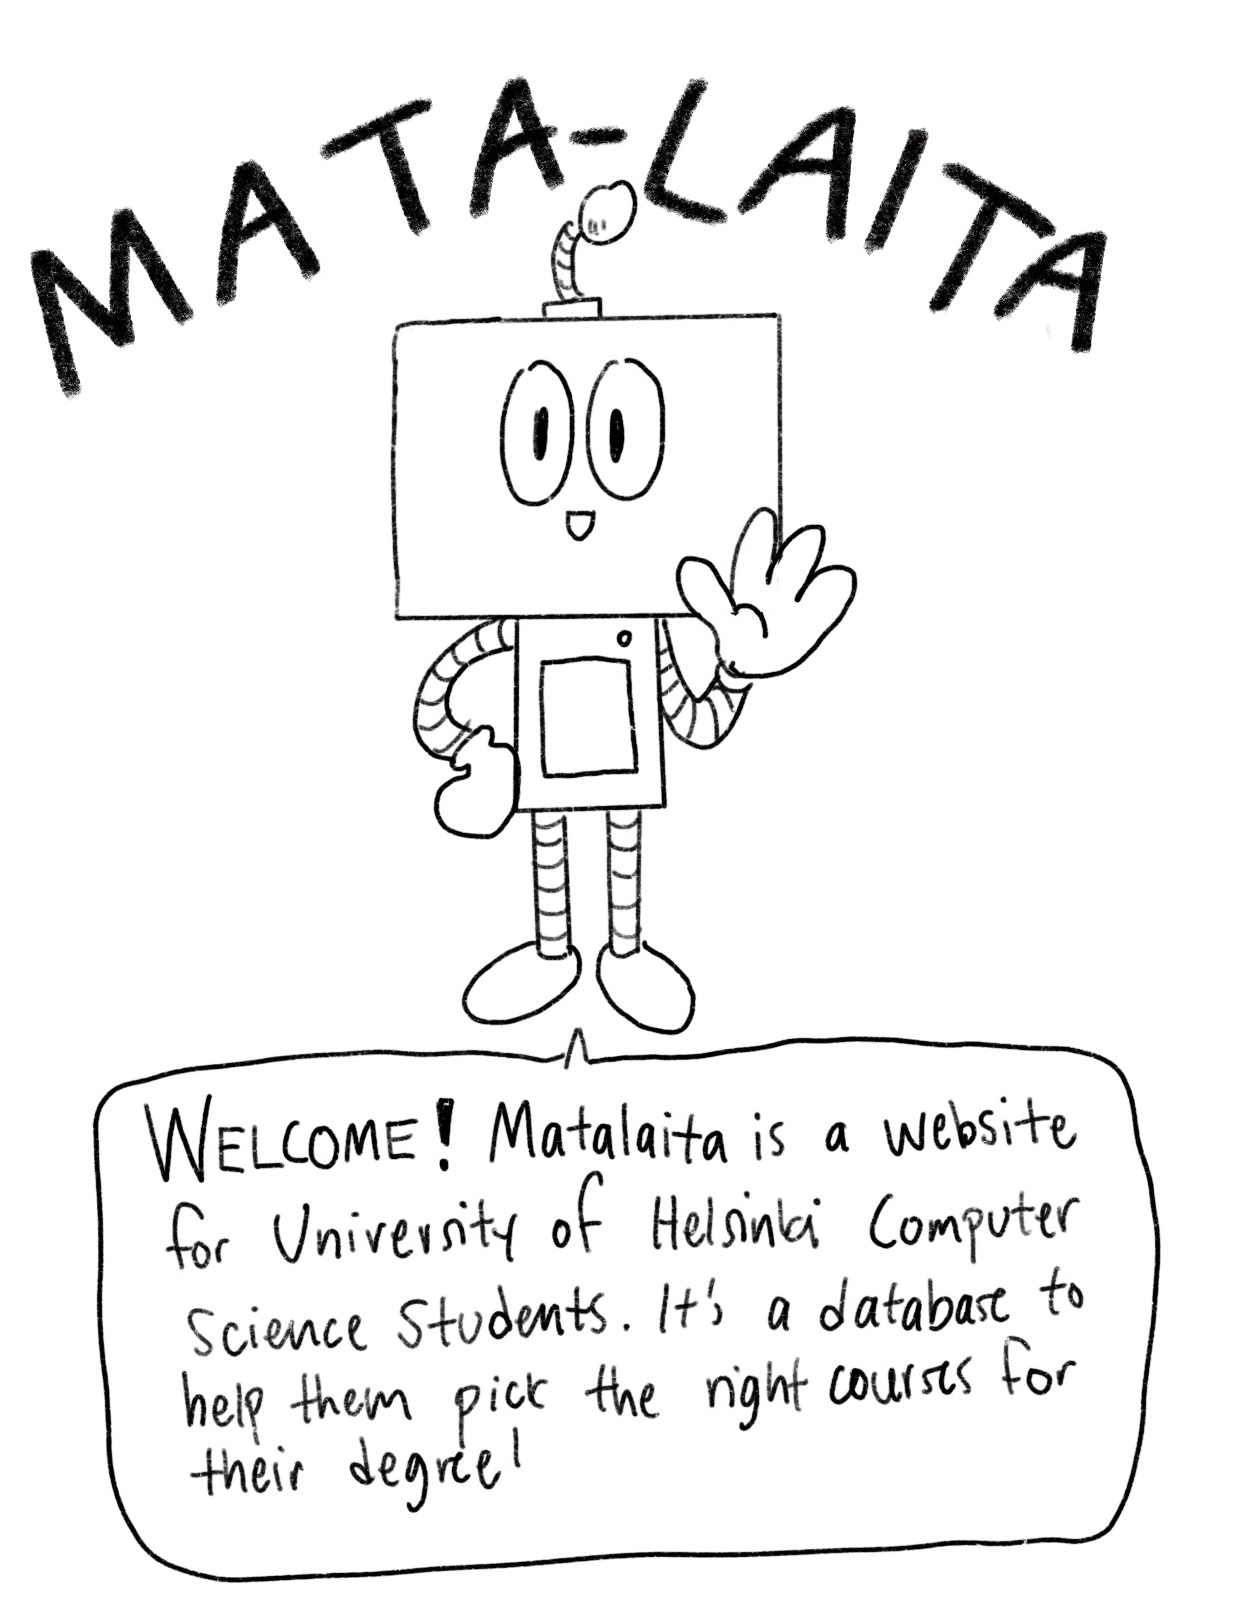 MATA-LAITA
WELCOME! Matalaita is a website
for University of Helsinki Computer
Science Students. It's a database to
help them pick the right courses for
their degree!